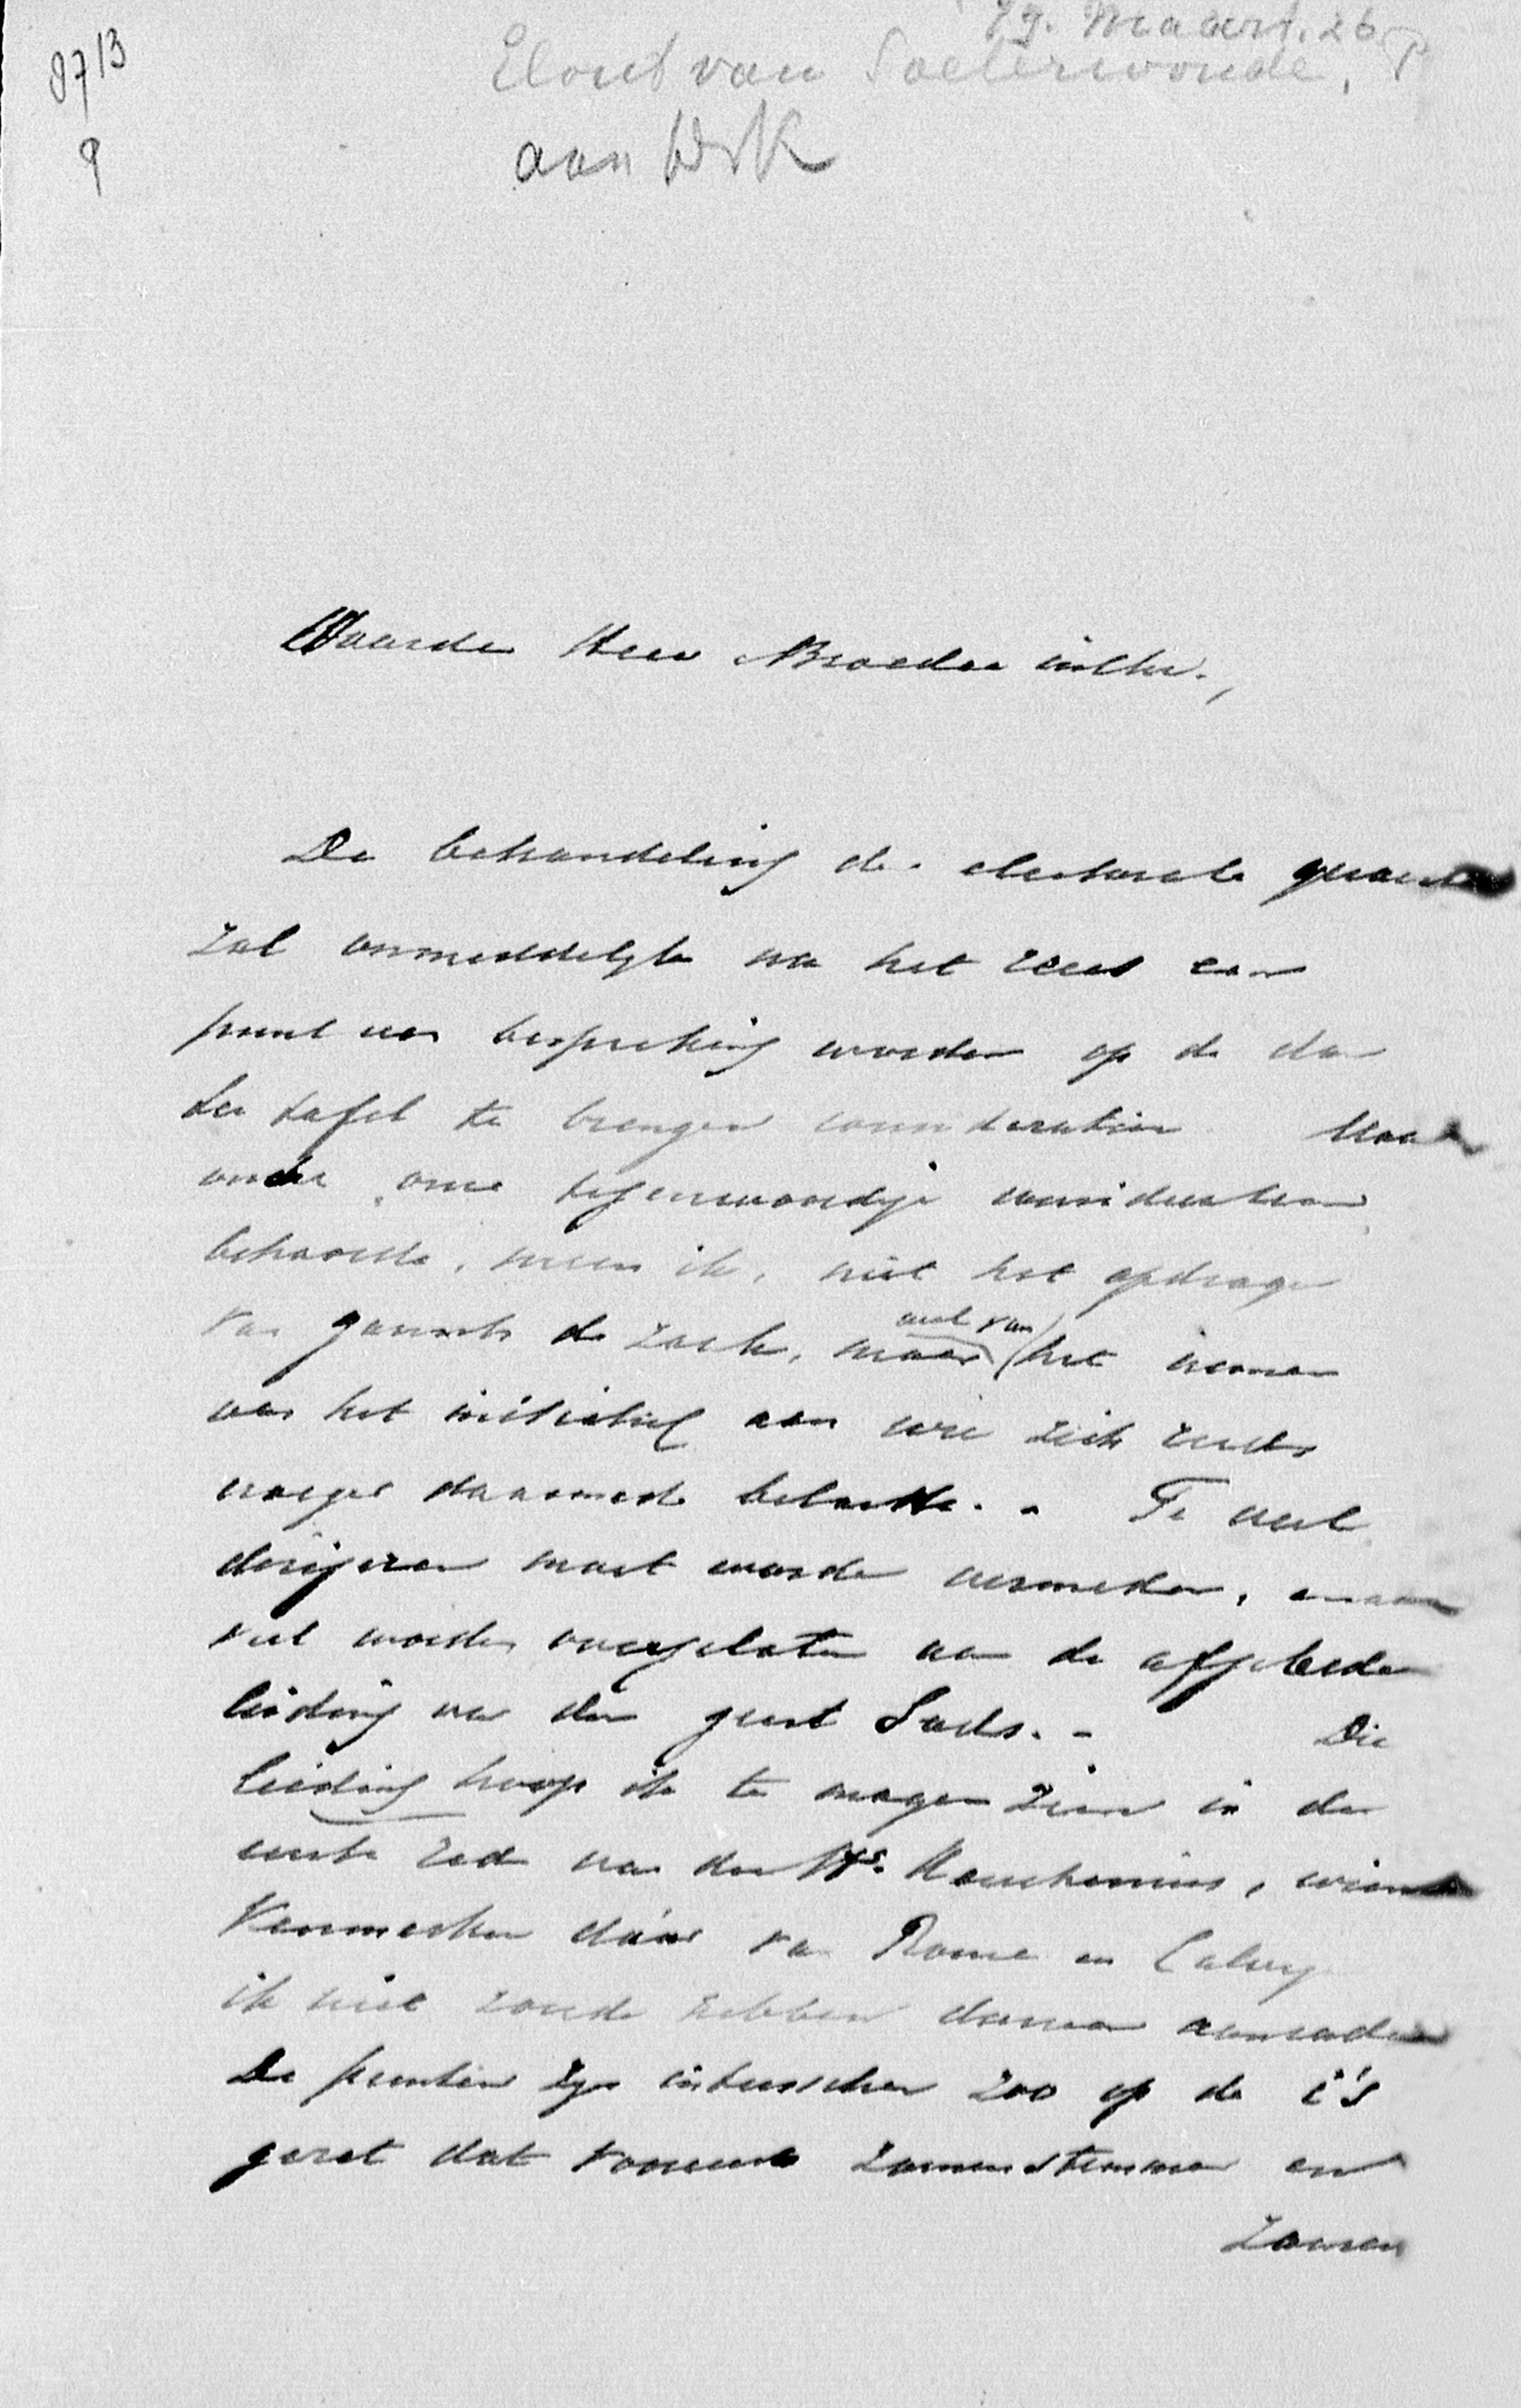 8713
9
79. Maart. 26
Elout van Soeterwoude,
aan Dr K
Waarde Heer en Broeder in Chr.,
De behandeling der electorale quaestie
zal onmiddelyk na het reces een
punt van bespreking worden op de dan
ter tafel te brengen consideratien. Maar
onder onze tegenwoordige consideratien
behoorde, meen ik, niet het opdragen
van gansch de zaak, maar wel van het nemen
van het initiatief aan wie zich reeds
vroeger daarmede belastte. - Te veel
dirigeren moet worden vermeden, en aan
veel worden overgelaten aan de afgebeden
leiding van den geest Gods. - Die
leiding hoop ik te mogen zien in de
eerste rede van den Hr. Keuchenius, wiens
Kenmerken dáár van Rome en Calvyn
ik niet zoude hebben durven aanraden
De punten zyn intusschen zoo op de i's
gezet dat vooreerst zamenstemmen en
zamen